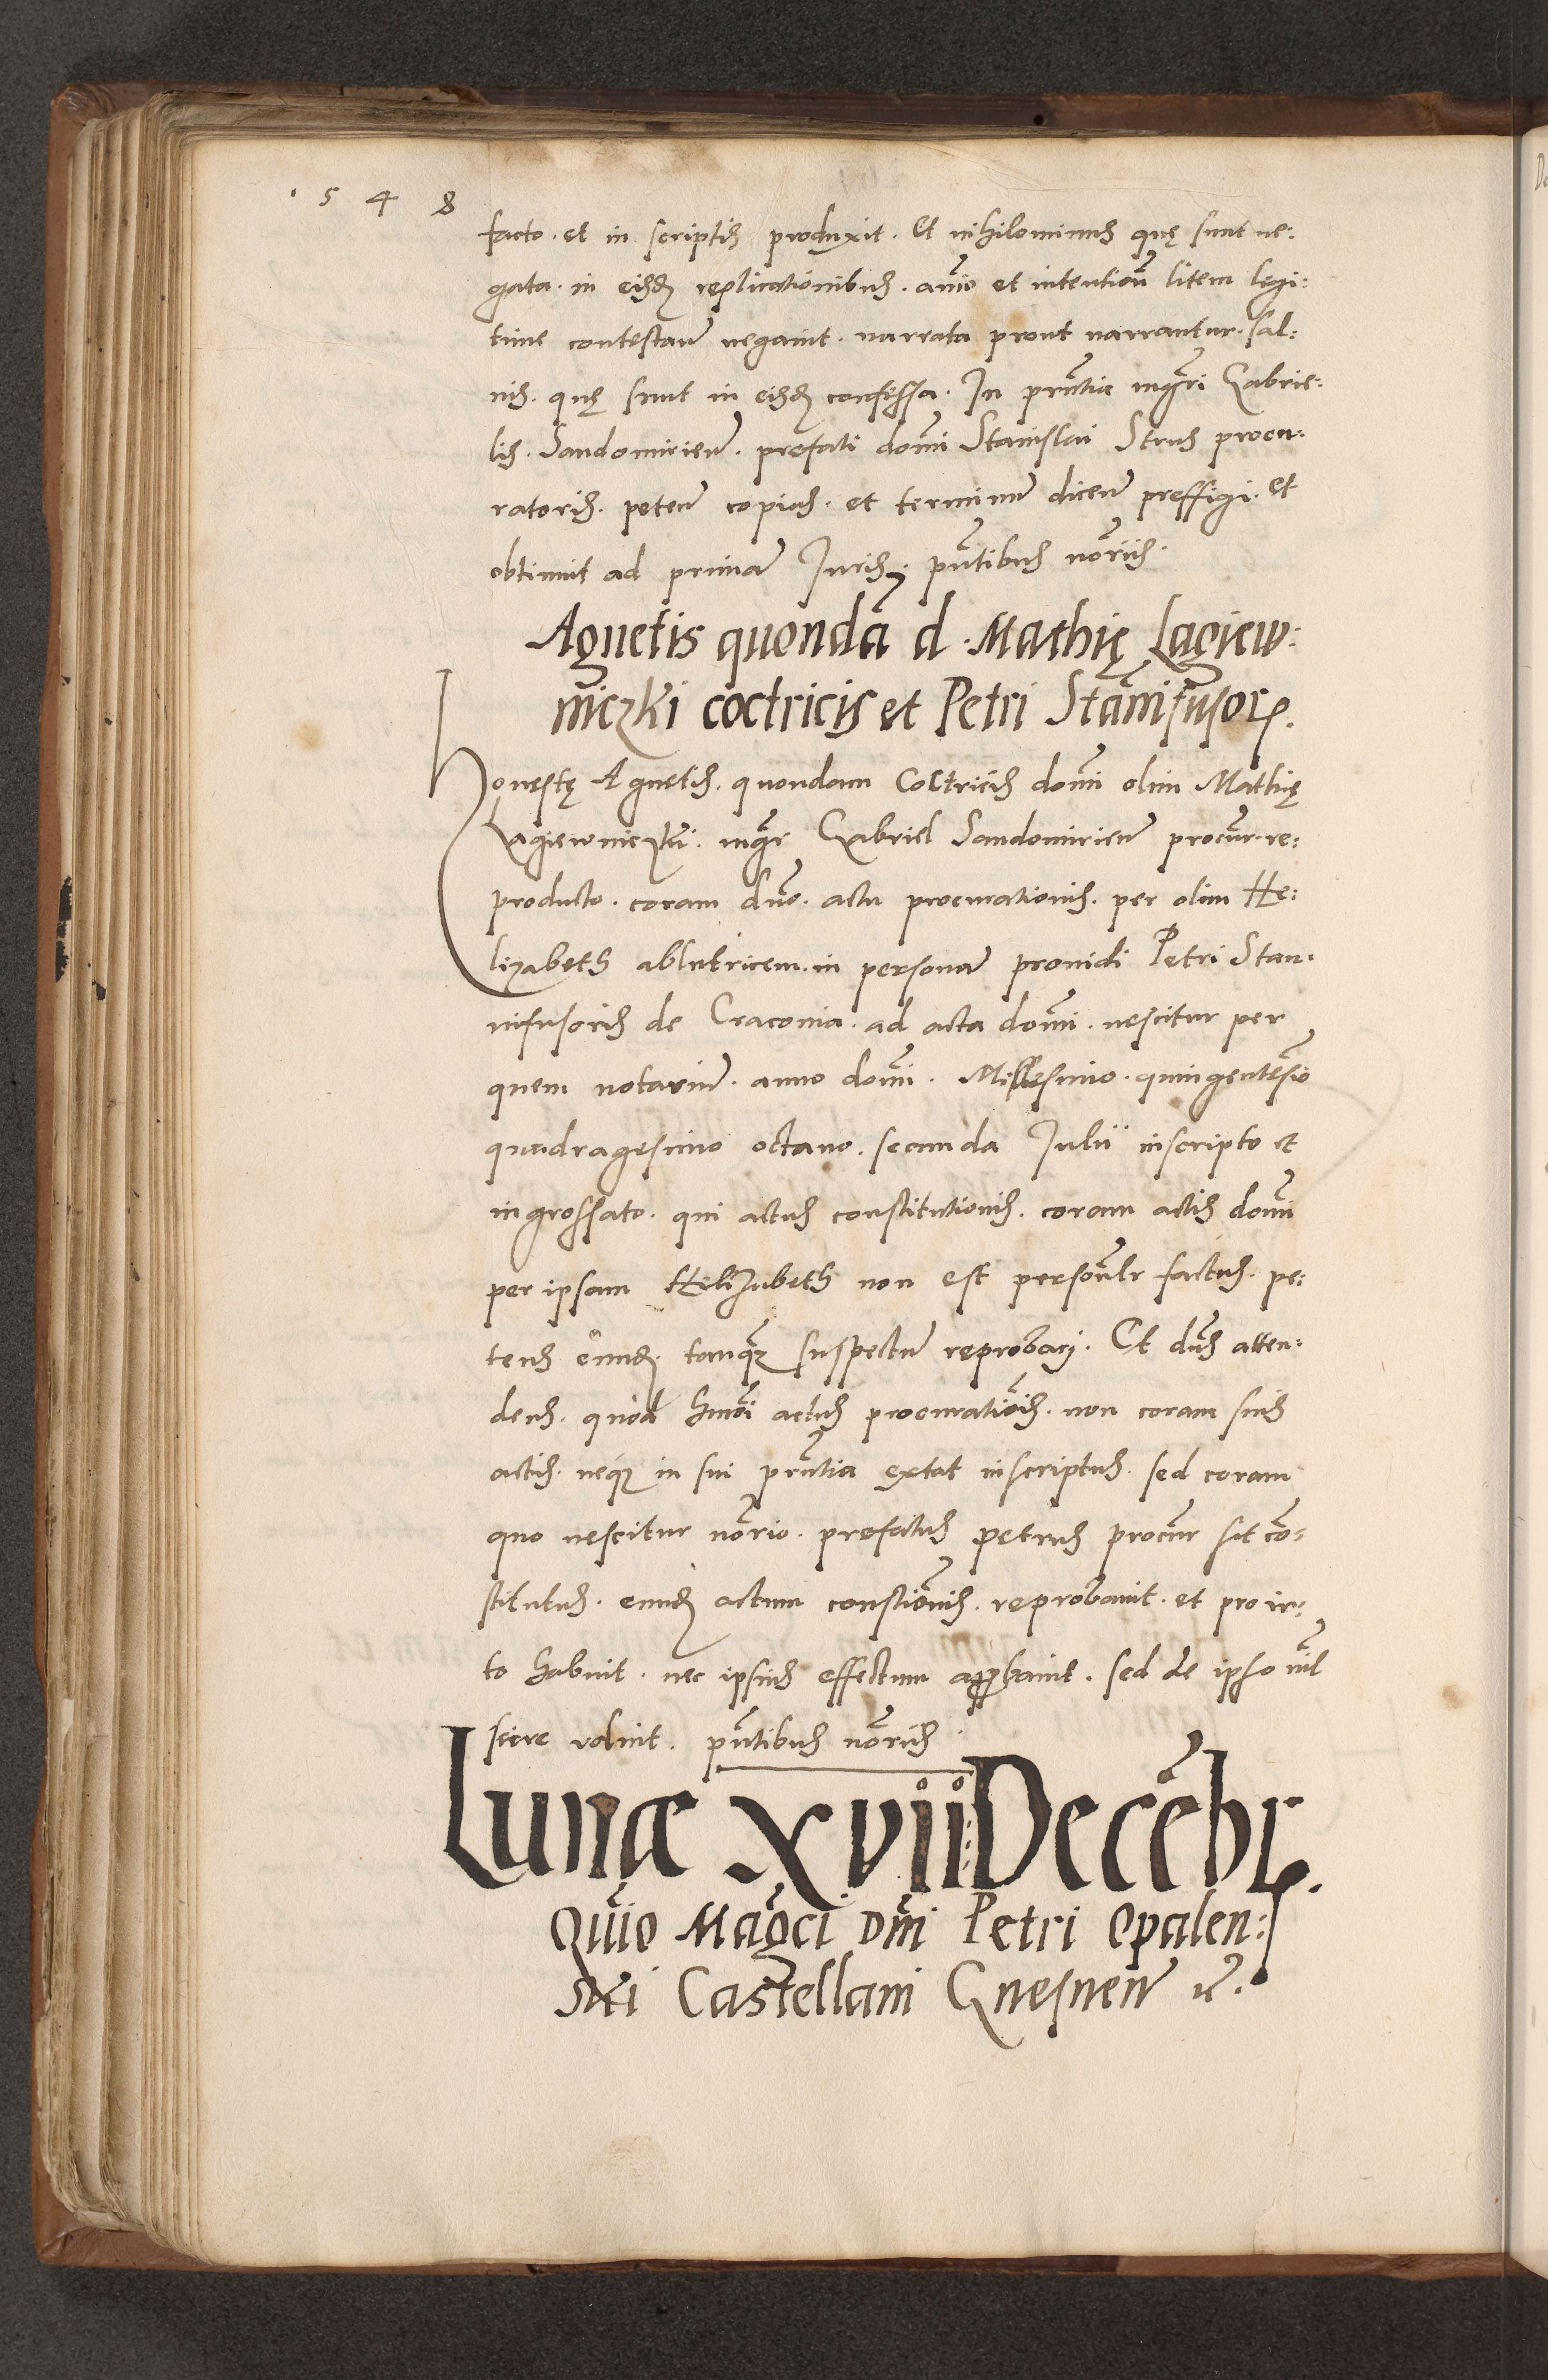 1 5 4 8
facto. et in scriptis produxit. Et nihilominus quę sunt ne:
gata. in eisdẽ replicationibus. animo et intentioñ litem legi:
time contestañ negauit. narrata prout narrantur. sal:
uis. quę sunt in eisdẽ confessa. In pñtia mgri Gabrie:
lis. Sandomirieñ. prefati domini Stanislai Strus procu:
ratoris. peteñ copias. et terminũ diceñ preffigi. et
obtinuit ad primã Juris, pñtibus notariis.
Agnetis quondã d. Mathię Lagiew:
niczki coctricis et Petri Stãnifusoris.
Honestę Agnetis. quondam Coctricis domini olim Mathię
Lagiewniczki. mgr Gabriel Sandomirieñ procur. re:
producto. coram dño. actu procurationis. per olim He:
lizabeth ablutricem. in personã prouidi Petri Stan:
nifusoris de Cracouia. ad acta domini. nescitur per
quem notariũ. anno domini. Millesimo. quingentesimo
quadragesimo octauo. secunda Julii inscripto et
ingrossato. qui actus constitutionis. coram actis domini
per ipsam Helizabeth non est personalr factus. pe:
tens eundẽ. tanq̃ suspectũ reprobari. Et dñs atten:
dens. quod hmõi actus procurationis. non coram suis
actis. neq; in sui pñtia extat inscriptus. sed coram
quo nescitur notario. prefatus Petrus procur sit cõ:
stitutus. eundẽ actum constitionis. reprobauit. et pro ir:
to habuit. nec ipsius effectum approbauit. sed de ipso nihil
scire voluit. pñtibus notariis.
Lunæ XVII Decẽbr.
Quio Magci Dñi Petri Opalen:
ski Castellani Gnesneñ etc.